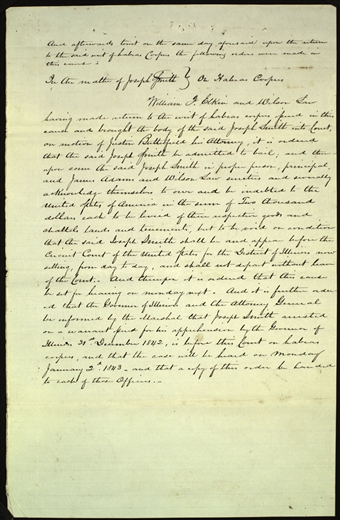 And afterwards towit on the same day aforesaid upon the return
to the said writ of habeas corpus the following orders were made in
this cause :
In the matter of Joseph Smith } On Habeas Corpus
William F. Elkin and Wilson Law
having made return to the writ of habeas corpus issued in this
cause and brought the body of the said Joseph Smith into Court,
on motion of Justin Butterfield his Attorney, it is ordered
that the said Joseph Smith be admitted to bail, and there
upon came the said Joseph Smith in proper person, principal,
and James Adams and Wilson Law sureties and severally
acknowledge themselves to owe and be indebted to the
United States of America in the sum of Two thousand
dollars each to be levied of their respective goods and
chattels lands and tenements, but to be void on condition
that the said Joseph Smith shall be and appear before the
Circuit Court of the United States for the District of Illinois now
sitting, from day to day, and shall not depart without leave
of the Court. And thereupon it is ordered that this cause
be set for hearing on monday next. And it is further order
ed that the Governor of Illinois and the Attorney General
be informed by the Marshal that Joseph Smith arrested
on a warrant issued for his apprehension by the Governor of
Illinois 31st December 1842, is before this Court on habeas
corpus, and that the case will be heard on Monday
January 2d 1843 - and that a copy of this order be handed
to each of those Officers. -